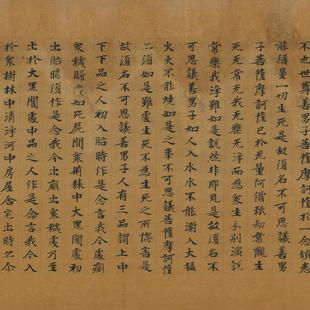 不也世尊一念傾悉
能稱量一切生死是故復名不可思議善男
子菩薩摩訶薩已於无量阿僧祇劫常觀生
死无常无我无樂无淨而為衆生分別演說
常樂我淨雖如是說然非耶見是故復名不
可思議善男子如人入水水不能溺入大猛
火火不能燒如是之事不可思議菩薩摩訶薩
亦復如是雖處生死不為生死之所惱害是
故復名不可思議善男子人有三品謂上中
下下品之人初入胎時作是念言我今處廁
衆穢歸處如死屍間衆蕀林中大黑闇處初
出胎時復作是念我今出廁出衆穢處乃至
出於大黑闇處中品之人作是念言我今入
於衆樹林中清淨河中房屋舍宅出時亦介